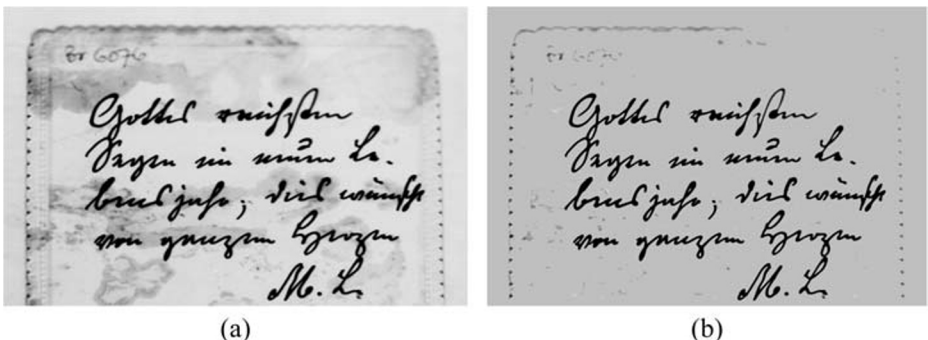 Br 6076
Gottes reichsten
Segen im neuen Le-
bensjahr, dies wünscht
von ganzem Herzen
M. L.
(a)
Br 6076
Gottes reichsten
Segen im neuen Le-
bensjahr, dies wünscht
von ganzem Herzen
M. L.
(b)